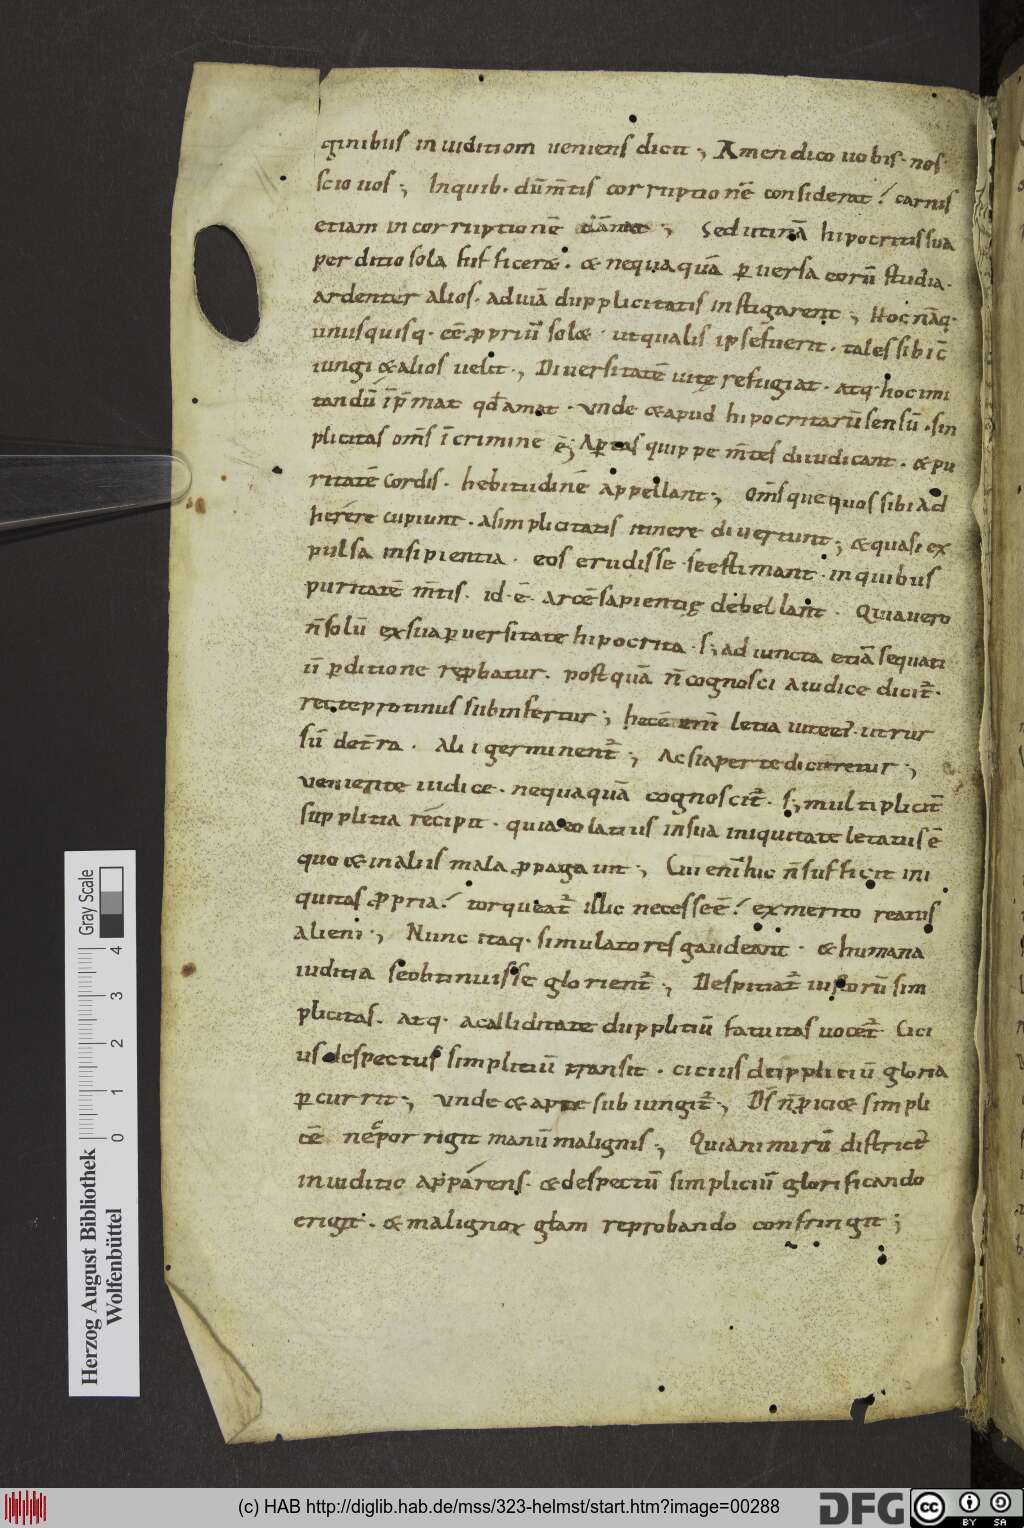 ginibus in iuditiom ueniens dicit ; Amen dico uobis · nos
scio uos ; Inquib · dū m̄tis corruptionē considerat ! carnis
etiam incorruptionē dānat ; Sed utinā hipocritis sua
perditio sola sufficeret · & nequaquā ꝑuersa eorū studia ·
ardenter alios · ad uiā dupplicitatis instigarent ; Hoc nāq ·
unusquisq · eē ꝓpriū solet · ut qualis ipse fuerit · tales sibi c̄
iungi & alios uelit ; Diuersitatē uitę refugiat · atq · hoc imi
tandū īp̄mat qđ amat · Vnde & apud hipocritarū sensū · sin
plicitas om̄s ī crimine ē ; Aꝑtas quippe m̄tes diiudicant · & pu
ritatē cordis · hebitudinē appellant ; Om̄sque quos sibi ad
herere cupiunt · a simplicitatis itinere diuertunt ; & quasi ex
pulsa insipientia · eos erudisse se estimant · in quibus
puritatē m̄tis · id · ē · arcē sapientię debellant · Quia uero
n̄ solū ex sua ꝑuersitate hipocrita · s; adiuncta etiā sequati
ū ꝑditione reꝓbatur · post quā n̄ cognosci a iudice dicit̄ ·
recte protinus subinfertur ; hec ē enī letia uite ei · ut rur
sū de t̄ra · alii germinent̄ ; Ac si aperte diceretur ;
Veniente iudice · nequaquā cognoscit̄ · s; multiplicit̄
supplitia recipit · quia eo latius in sua iniquitate letatus ē
quo & in aliis mala ꝓpagauit ; Cui enī hic n̄ sufficit ini
quitas ꝓpria ! torqueat̄ illic necesse ē ! ex merito reatus
alieni ; Nunc itaq · simulatores gaudeant · & humana
iuditia se obtinuisse glorient̄ ; Despitiat̄ iustorū sim
plicitas · atq · a calliditate dupplitiū fatuitas uocet̄ · Cici
us despectus simplitiū transit · cicius dupplitiū gloria
ꝑcurrit ; Vnde & apte subiungit̄ ; Dš n̄ ꝓiciet simpli
cē nec porrigit manū malignis ; Quia nimirū districte
in iuditio apparens · & despectū simpliciū glorificando
erigit · & malignoꝝ głam reprobando confringit ;
Gray Scale
0 1 2 3 4
Herzog August Bibliothek
Wolfenbüttel
(c) HAB http://diglib.hab.de/mss/323-helmst/start.htm?image=00288
DFG
cc
BY SA